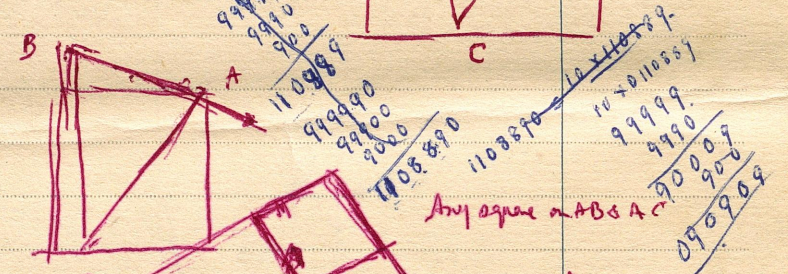 B
A
C
99990
9990
900
110889
999990
99900
9000
1108890
1108890 = 10 x 110889
10 x 0110889
99999
9990
90009
900
090909
Any square on AB & AC